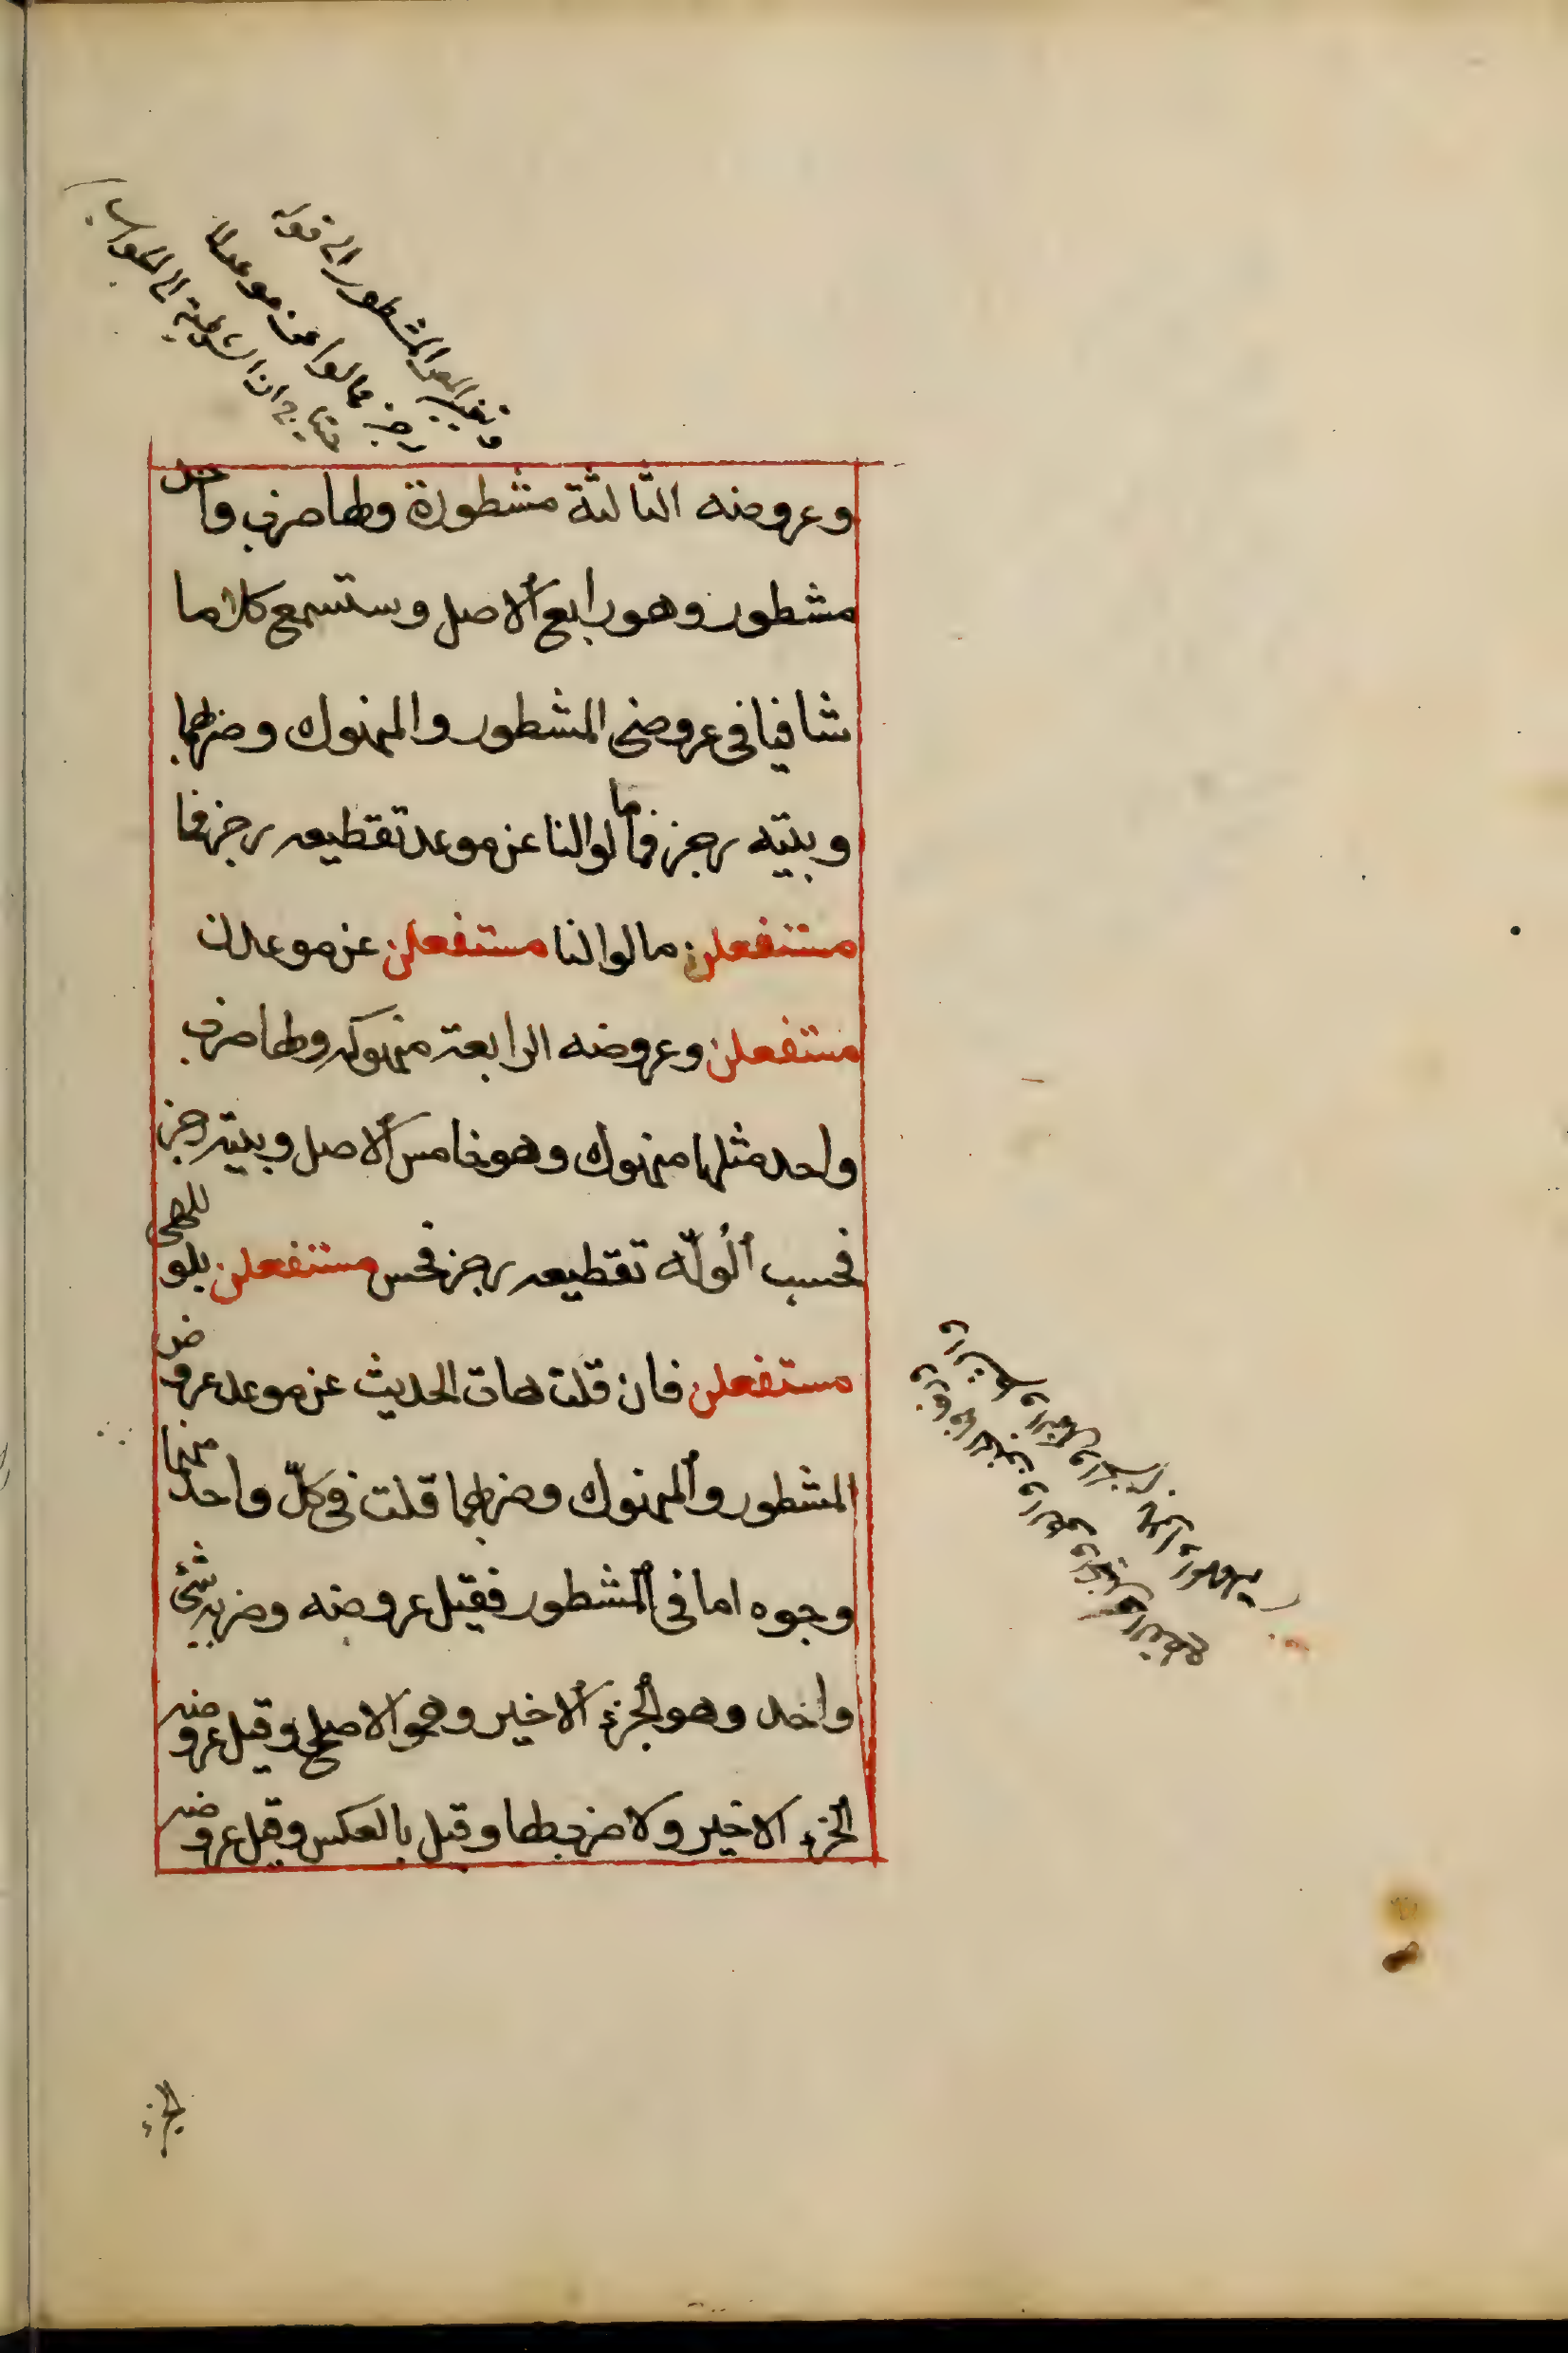 وعروضه الثالثة مشطورة ولها ضرب واحد
مشطور وهو رابع الاصل وستسمع كلاما
شافيا فى عروضى المشطور والمنهوك وضربهما
وبيته رجز فما مالوا لنا عن موعد تقطيعه رجز فما
مستفعلن مالوا لنا مستفعلن عن موعدن
مستفعلن وعروضه الرابعة منهوكه ولها ضرب
واحد مثلها منهوك وهو خامس الاصل وبيته رجز
فحسب الوله تقطيعه رجز فحس مستفعلن بلولهى
مستفعلن فان قلت هات الحديث عن موعد عروض
المشطور والمنهوك وضربهما قلت فى كلّ واحد منهما
وجوه اما فى المشطور فقيل عروضه وضربه شئ
واحد وهو الجزء الاخير وهو الاصح وقيل عروضه
الجزء الاخير ولا ضرب لها وقيل بالعكس وقيل عروضه
الجزء